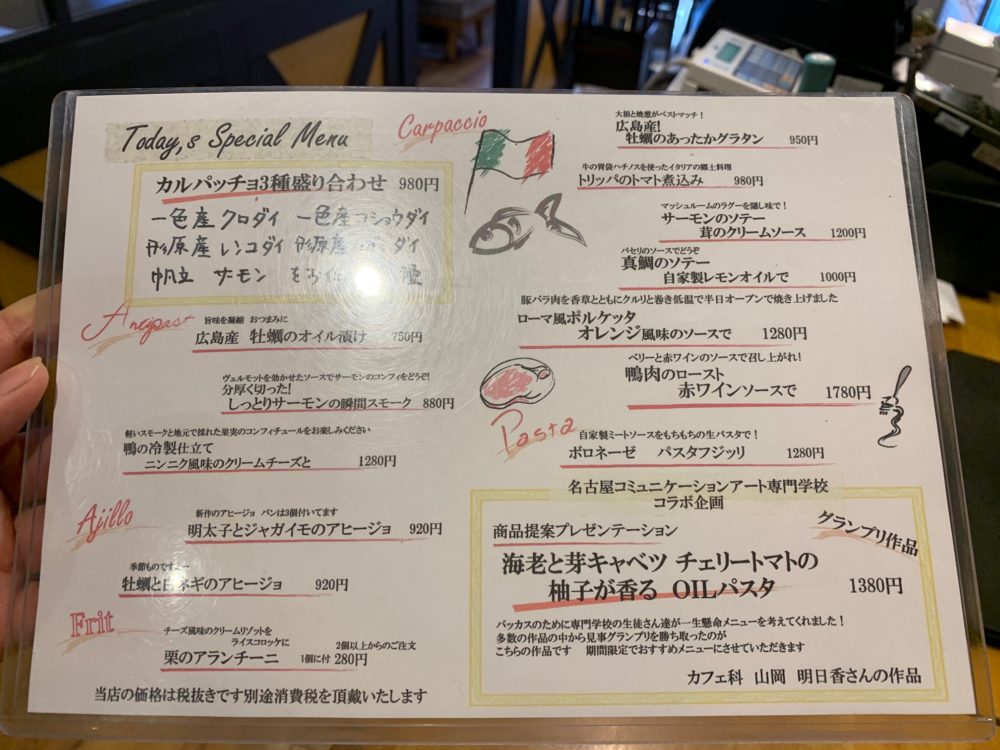 Today,s Special Menu
Carpaccio
カルパッチョ3種盛り合わせ 980円
一色産 クロダイ 一色産コショウダイ
形原産 レンコダイ 形原産 ダイ
帆立 サーモン
Antipast
旨味を凝縮 おつまみに
広島産 牡蠣のオイル漬け 750円
ヴェルモットを効かせたソースでサーモンのコンフィをどうぞ!
分厚く切った!
しっとりサーモンの瞬間スモーク 880円
軽いスモークと地元で採れた果実のコンフィチュールをお楽しみください
鴨の冷製仕立て
ニンニク風味のクリームチーズと 1280円
Ajillo
新作のアヒージョ パンは3個付いてます
明太子とジャガイモのアヒージョ 920円
季節ものですよー
牡蠣と白ネギのアヒージョ 920円
Frit
チーズ風味のクリームリゾットを
ライスコロッケに 2個以上からのご注文
栗のアランチーニ 1個に付 280円
当店の価格は税抜きです別途消費税を頂戴いたします
大根と焼葱がベストマッチ!
広島産!
牡蠣のあったかグラタン 950円
牛の胃袋ハチノスを使ったイタリアの郷土料理
トリッパのトマト煮込み 980円
マッシュルームのラグーを隠し味で!
サーモンのソテー
茸のクリームソース 1200円
パセリのソースでどうぞ
真鯛のソテー
自家製レモンオイルで 1000円
豚バラ肉を香草とともにクルリと巻き低温で半日オーブンで焼き上げました
ローマ風ポルケッタ
オレンジ風味のソースで 1280円
ベリーと赤ワインのソースで召し上がれ!
鴨肉のロースト
赤ワインソースで 1780円
Pasta
自家製ミートソースをもちもちの生パスタで!
ボロネーゼ パスタフジッリ 1280円
名古屋コミュニケーションアート専門学校
コラボ企画
商品提案プレゼンテーション
グランプリ作品
海老と芽キャベツ チェリートマトの
柚子が香る OILパスタ 1380円
バッカスのために専門学校の生徒さん達が一生懸命メニューを考えてくれました!
多数の作品の中から見事グランプリを勝ち取ったのが
こちらの作品です 期間限定でおすすめメニューにさせていただきます
カフェ科 山岡 明日香さんの作品